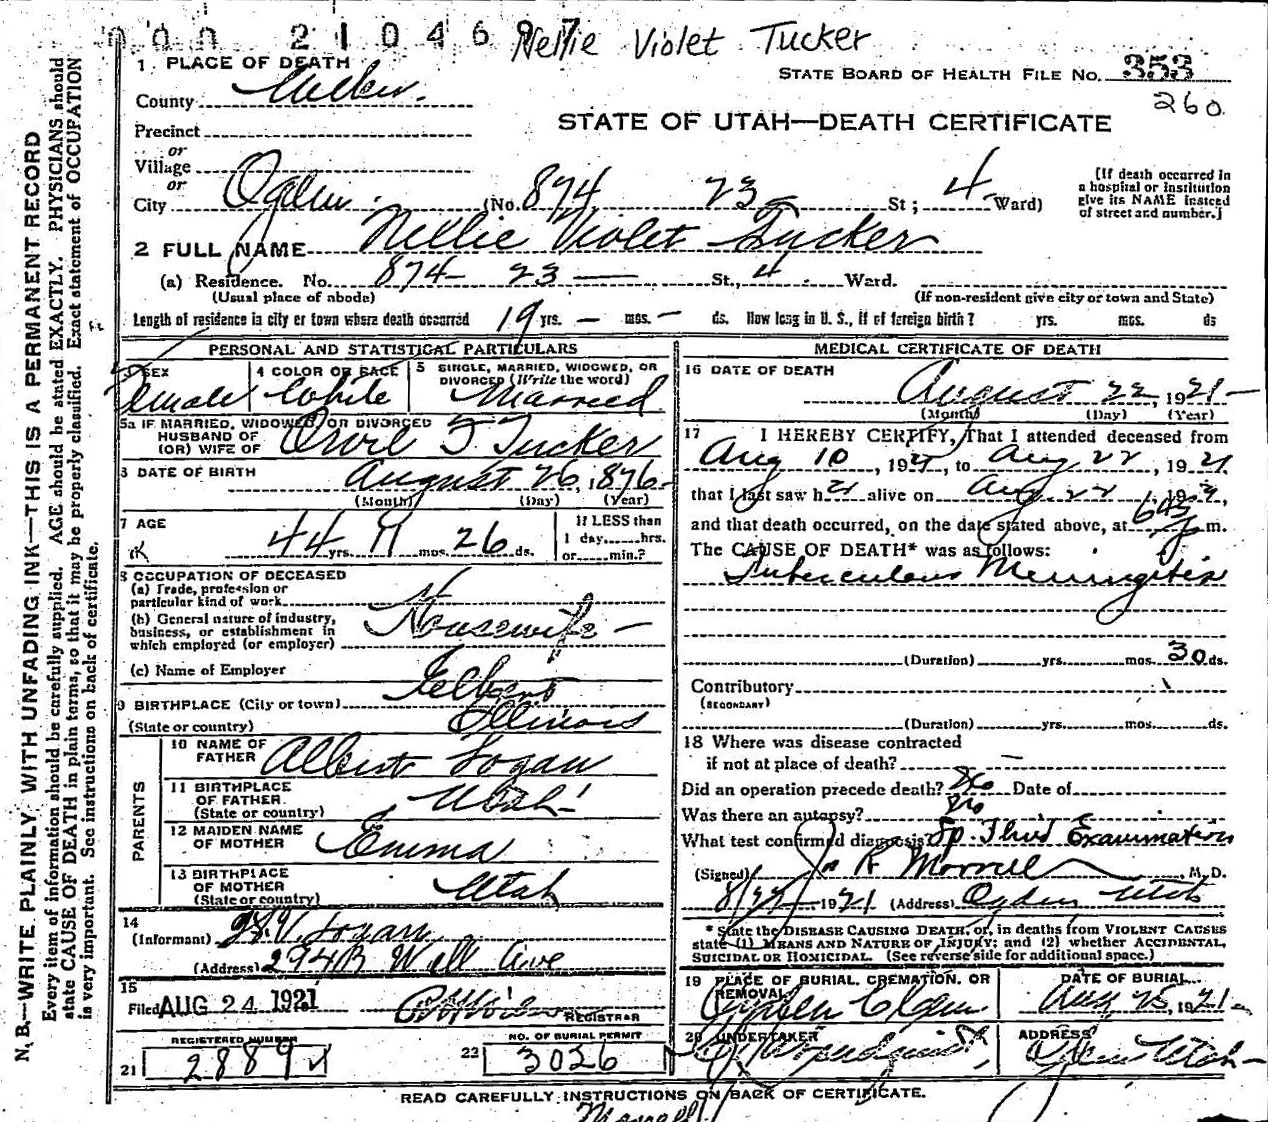 000 2104697 Nellie Violet Tucker
1 PLACE OF DEATH
STATE BOARD OF HEALTH FILE NO. 353
260
County Weber
STATE OF UTAH—DEATH CERTIFICATE
Precinct
or
Village
or
City Ogden (No. 874 23 St; 4 Ward)
[If death occurred in
a hospital or institution
give its NAME instead
of street and number.]
2 FULL NAME Nellie Violet Tucker
(a) Residence. No. 874 – 23 — St., 4 Ward.
(Usual place of abode) (If non-resident give city or town and State)
Length of residence in city or town where death occurred 19 yrs. – mos. – ds. How long in U. S., if of foreign birth? yrs. mos. ds
PERSONAL AND STATISTICAL PARTICULARS
3 SEX Female
4 COLOR OR RACE White
5 SINGLE, MARRIED, WIDOWED, OR
DIVORCED (Write the word)
Married
5a IF MARRIED, WIDOWED, OR DIVORCED
HUSBAND OF
(OR) WIFE OF Orvil F Tucker
6 DATE OF BIRTH August 26, 1876
(Month) (Day) (Year)
7 AGE
44 yrs. 11 mos. 26 ds.
If LESS than
1 day, hrs.
or min.?
8 OCCUPATION OF DECEASED
(a) Trade, profession or
particular kind of work
(b) General nature of industry,
business, or establishment in
which employed (or employer)
Housewife –
(c) Name of Employer
9 BIRTHPLACE (City or town)
(State or country) Illinois
PARENTS
10 NAME OF
FATHER Albert Logan
11 BIRTHPLACE
OF FATHER
(State or country) Utah
12 MAIDEN NAME
OF MOTHER Emma
13 BIRTHPLACE
OF MOTHER
(State or country) Utah
14
(Informant) Logan
(Address) 2948 Wall Ave
15
Filed AUG 24 1921
REGISTRAR
REGISTERED NUMBER
21 2889
NO. OF BURIAL PERMIT
22 3026
MEDICAL CERTIFICATE OF DEATH
16 DATE OF DEATH
August 22, 1921
(Month) (Day) (Year)
17 I HEREBY CERTIFY, That I attended deceased from
Aug 10, 1921, to Aug 22, 1921
that I last saw her alive on Aug 22, 1921,
and that death occurred, on the date stated above, at 645 p m.
The CAUSE OF DEATH* was as follows:
Tuberculous Meningitis
(Duration) yrs. mos. 30 ds.
Contributory
(SECONDARY)
(Duration) yrs. mos. ds.
18 Where was disease contracted
if not at place of death? –
Did an operation precede death? No Date of
Was there an autopsy? No
What test confirmed diagnosis? Sp. Fluid Examination
(Signed) R Morrell, M. D.
8/22 1921 (Address) Ogden Utah
* State the DISEASE CAUSING DEATH, or, in deaths from VIOLENT CAUSES
state (1) MEANS AND NATURE OF INJURY; and (2) whether ACCIDENTAL,
SUICIDAL OR HOMICIDAL. (See reverse side for additional space.)
19 PLACE OF BURIAL, CREMATION, OR
REMOVAL
DATE OF BURIAL
Aug 25, 1921
20 UNDERTAKER
ADDRESS
Ogden Utah
READ CAREFULLY INSTRUCTIONS ON BACK OF CERTIFICATE.
Morrell
N. B.—WRITE PLAINLY, WITH UNFADING INK—THIS IS A PERMANENT RECORD
Every item of information should be carefully supplied. AGE should be stated EXACTLY. PHYSICIANS should
state CAUSE OF DEATH in plain terms, so that it may be properly classified. Exact statement of OCCUPATION
is very important. See instructions on back of certificate.